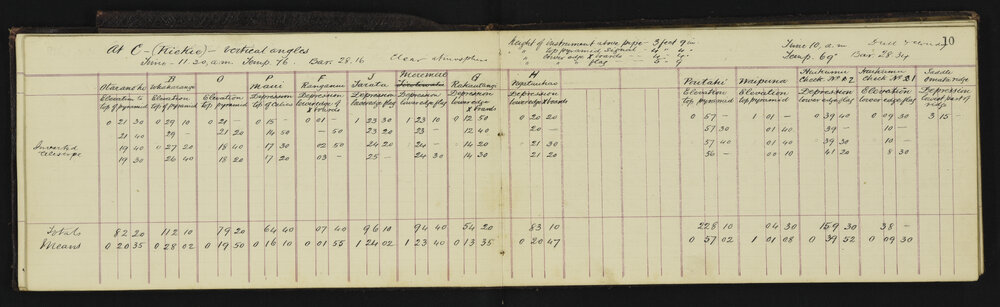 At C - (Hickie) - Vertical angles
Time - 11.30, a.m. Temp. 76. Bar. 28.16 Clear atmosphere
height of instrument above pipe - 3 feet 9 in
June 10, a.m 10
Temp. 69° Bar. 28.34
B O P F J G H
Otaranoki Whakarangi Maui Ranganui Tarata Rakautangi Ngatuhoa Puitahi Waipuna Saddle
Elevation to top of pyramid Elevation top of pyramid Elevation top of pyramid Depression top of cabin Depression Depression lower edge flag Depression lower edge flag Depression lower edge & boards Depression lower edge & boards Elevation top pyramid Elevation top pyramid Depression lower edge flag Elevation lower edge flag Depression lower part of ridge
0 21 30 0 29 10 0 21 - 0 15 - 0 01 - 1 23 30 1 23 10 0 12 50 0 20 20 0 57 - 1 01 - 0 39 40 0 09 30 3 15 -
21 40 29 - 21 20 14 50 - 50 23 20 23 - 12 40 20 - 57 30 01 40 39 - 10 -
Inverted telescope 19 40 0 27 20 18 40 17 30 02 50 24 20 24 - 14 20 21 30 57 40 01 40 39 30 10 -
19 30 26 40 18 20 17 20 03 - 25 - 24 30 14 30 21 20 56 - 00 10 41 20 8 30
Totals 82 20 112 10 79 20 64 40 07 40 96 10 94 40 54 20 83 10 228 10 04 30 159 30 38 -
Means 0 20 35 0 28 02 0 19 50 0 16 10 0 01 55 1 24 02 1 23 40 0 13 35 0 20 47 0 57 02 1 01 08 0 39 52 0 09 30